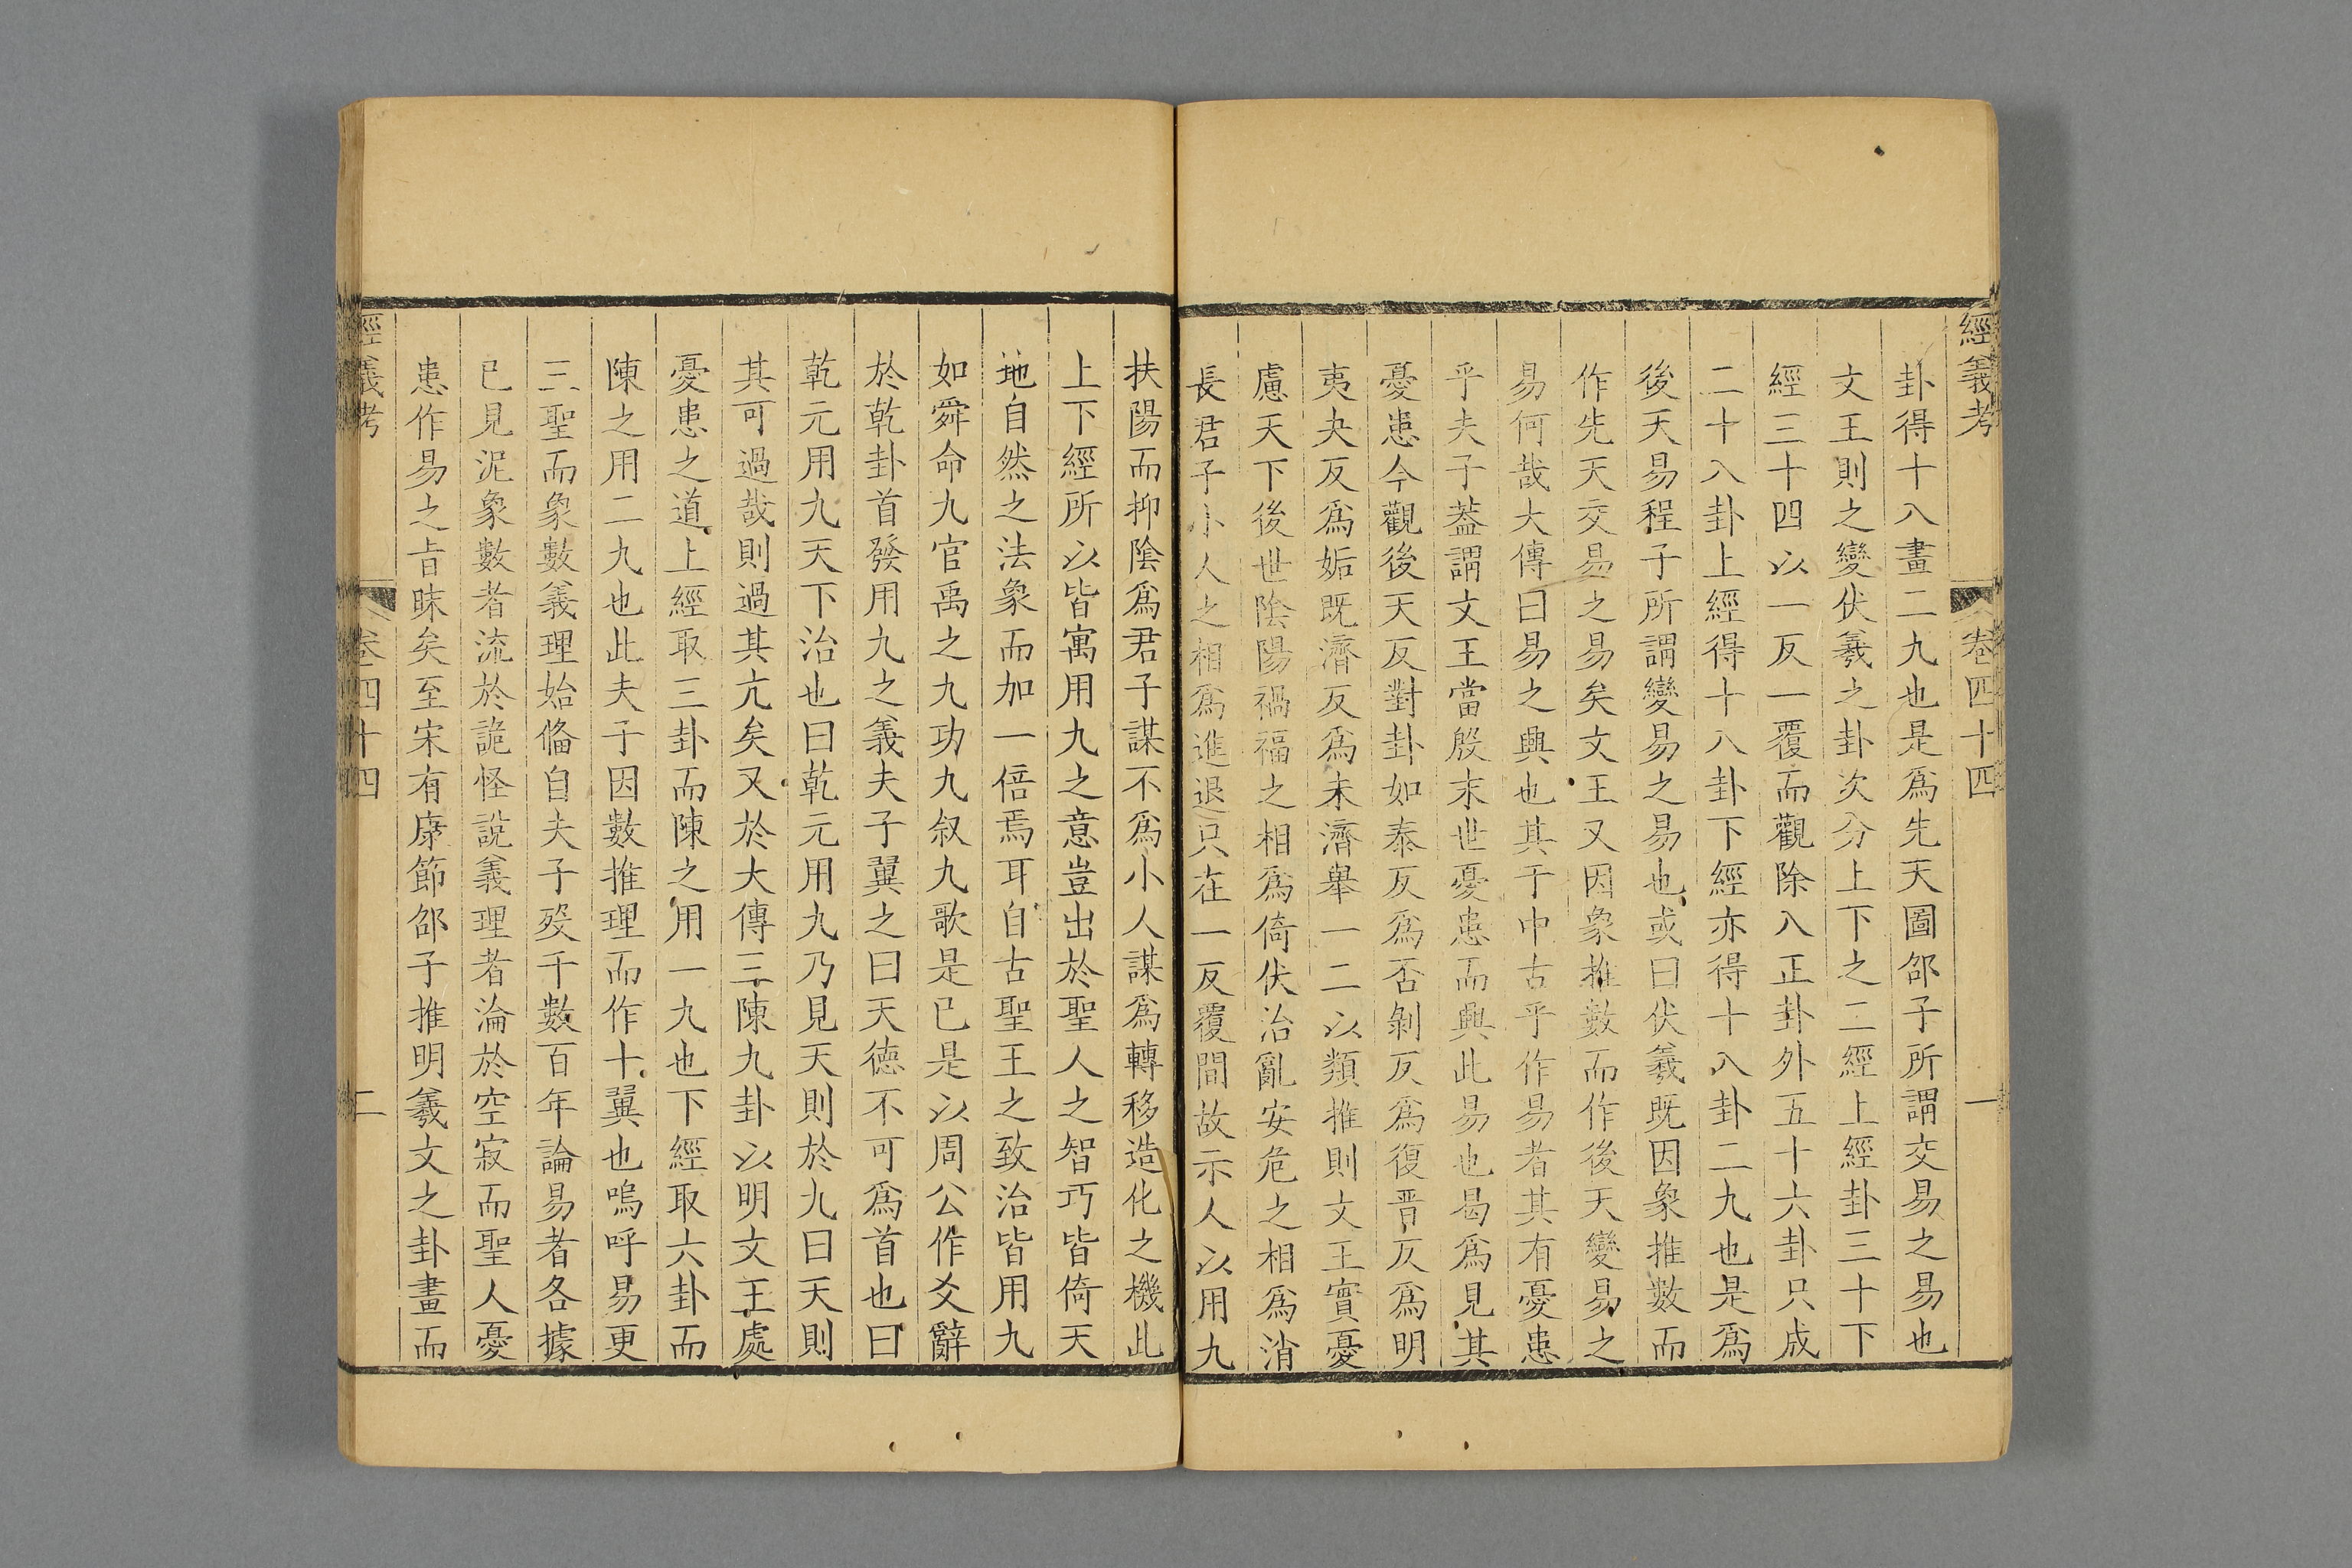 經義考
卷四十四
一
卦得十八畫二九也是爲先天圖邵子所謂交易之易也
文王則之變伏羲之卦次分上下之二經上經卦三十下
經三十四以一反一覆而觀除八正卦外五十六卦只成
二十八卦上經得十八卦下經亦得十八卦二九也是爲
後天易程子所謂變易之易也或曰伏羲既因象推數而
作先天交易之易矣文王又因象推數而作後天變易之
易何哉大傳曰易之興也其于中古乎作易者其有憂患
乎夫子葢謂文王當殷末世憂患而興此易也曷爲見其
憂患今觀後天反對卦如泰反爲否剝反爲復晋反爲明
夷夬反爲姤既濟反爲未濟舉一二以類推則文王實憂
慮天下後世陰陽禍福之相爲倚伏治亂安危之相爲消
長君子小人之相爲進退只在一反覆間故示人以用九
扶陽而抑陰爲君子謀不爲小人謀爲轉移造化之機此
上下經所以皆寓用九之意豈出於聖人之智巧皆倚天
地自然之法象而加一倍焉耳自古聖王之致治皆用九
如舜命九官禹之九功九叙九歌是已是以周公作爻辭
於乾卦首發用九之義夫子翼之曰天德不可爲首也曰
乾元用九天下治也曰乾元用九乃見天則於九曰天則
其可過哉則過其亢矣又於大傳三陳九卦以明文王處
憂患之道上經取三卦而陳之用一九也下經取六卦而
陳之用二九也此夫子因數推理而作十翼也嗚呼易更
三聖而象數義理始備自夫子歿千數百年論易者各據
已見泥象數者流於詭怪說義理者淪於空寂而聖人憂
患作易之旨昧矣至宋有康節邵子推明羲文之卦畫而
經義考
卷四十四
二